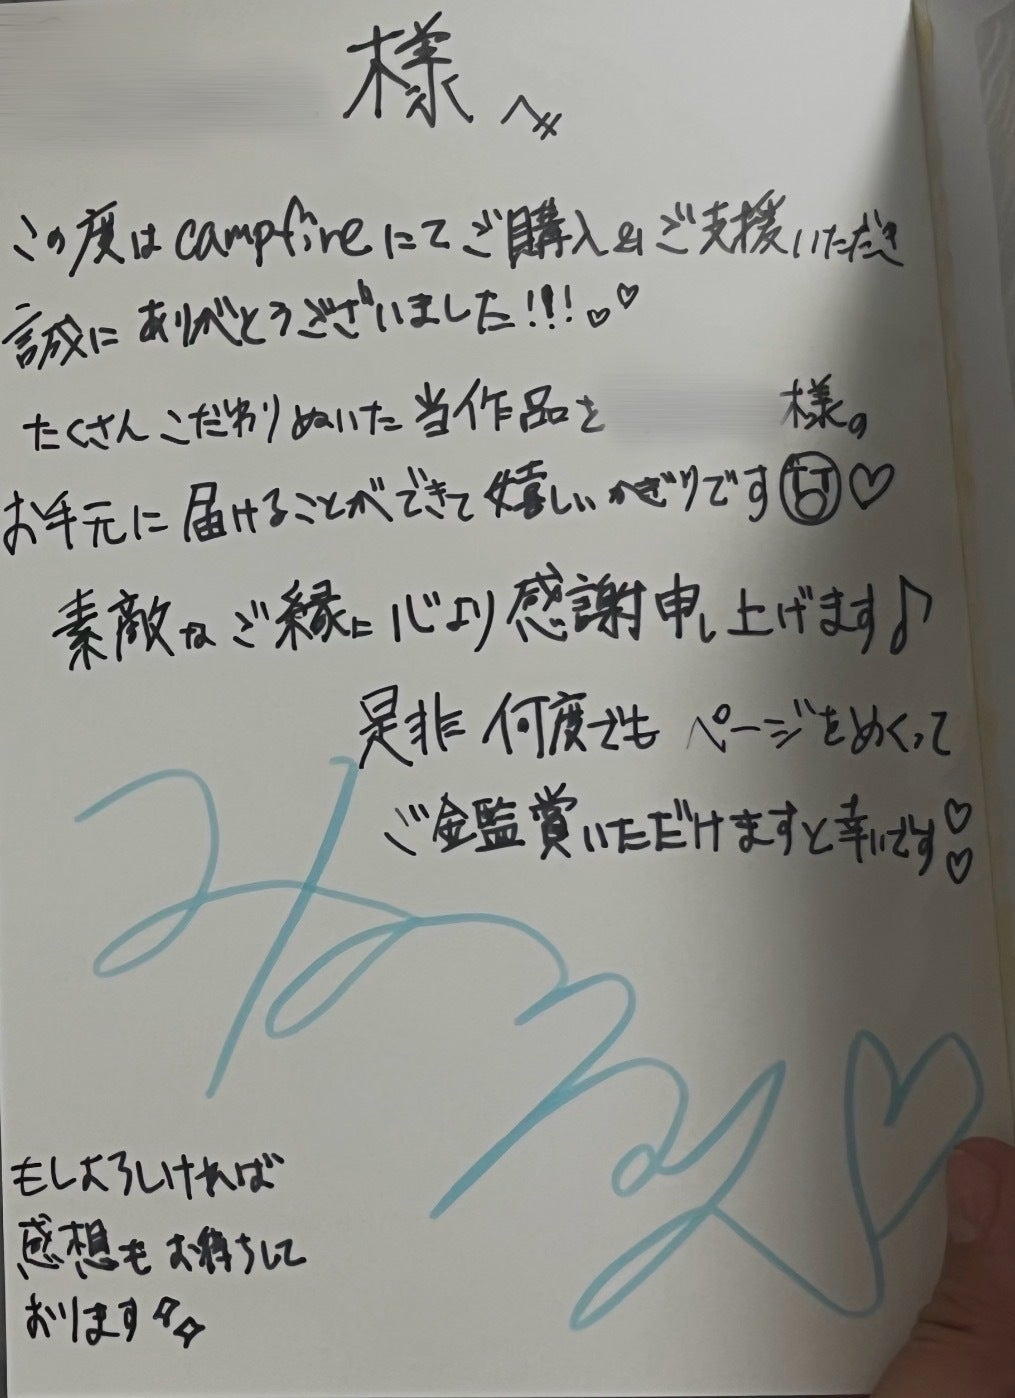 様へ〃
この度はcampfireにてご購入&ご支援いただき
誠にありがとうございました!!!♡♡
たくさんこだわりぬいた当作品を 様の
お手元に届けることができて嬉しいかぎりです♡
素敵なご縁に心より感謝申し上げます♪
是非何度でもページをめくって
ご金監賞いただけますと幸いです♡♡
もしよろしければ
感想もお待ちして
おります